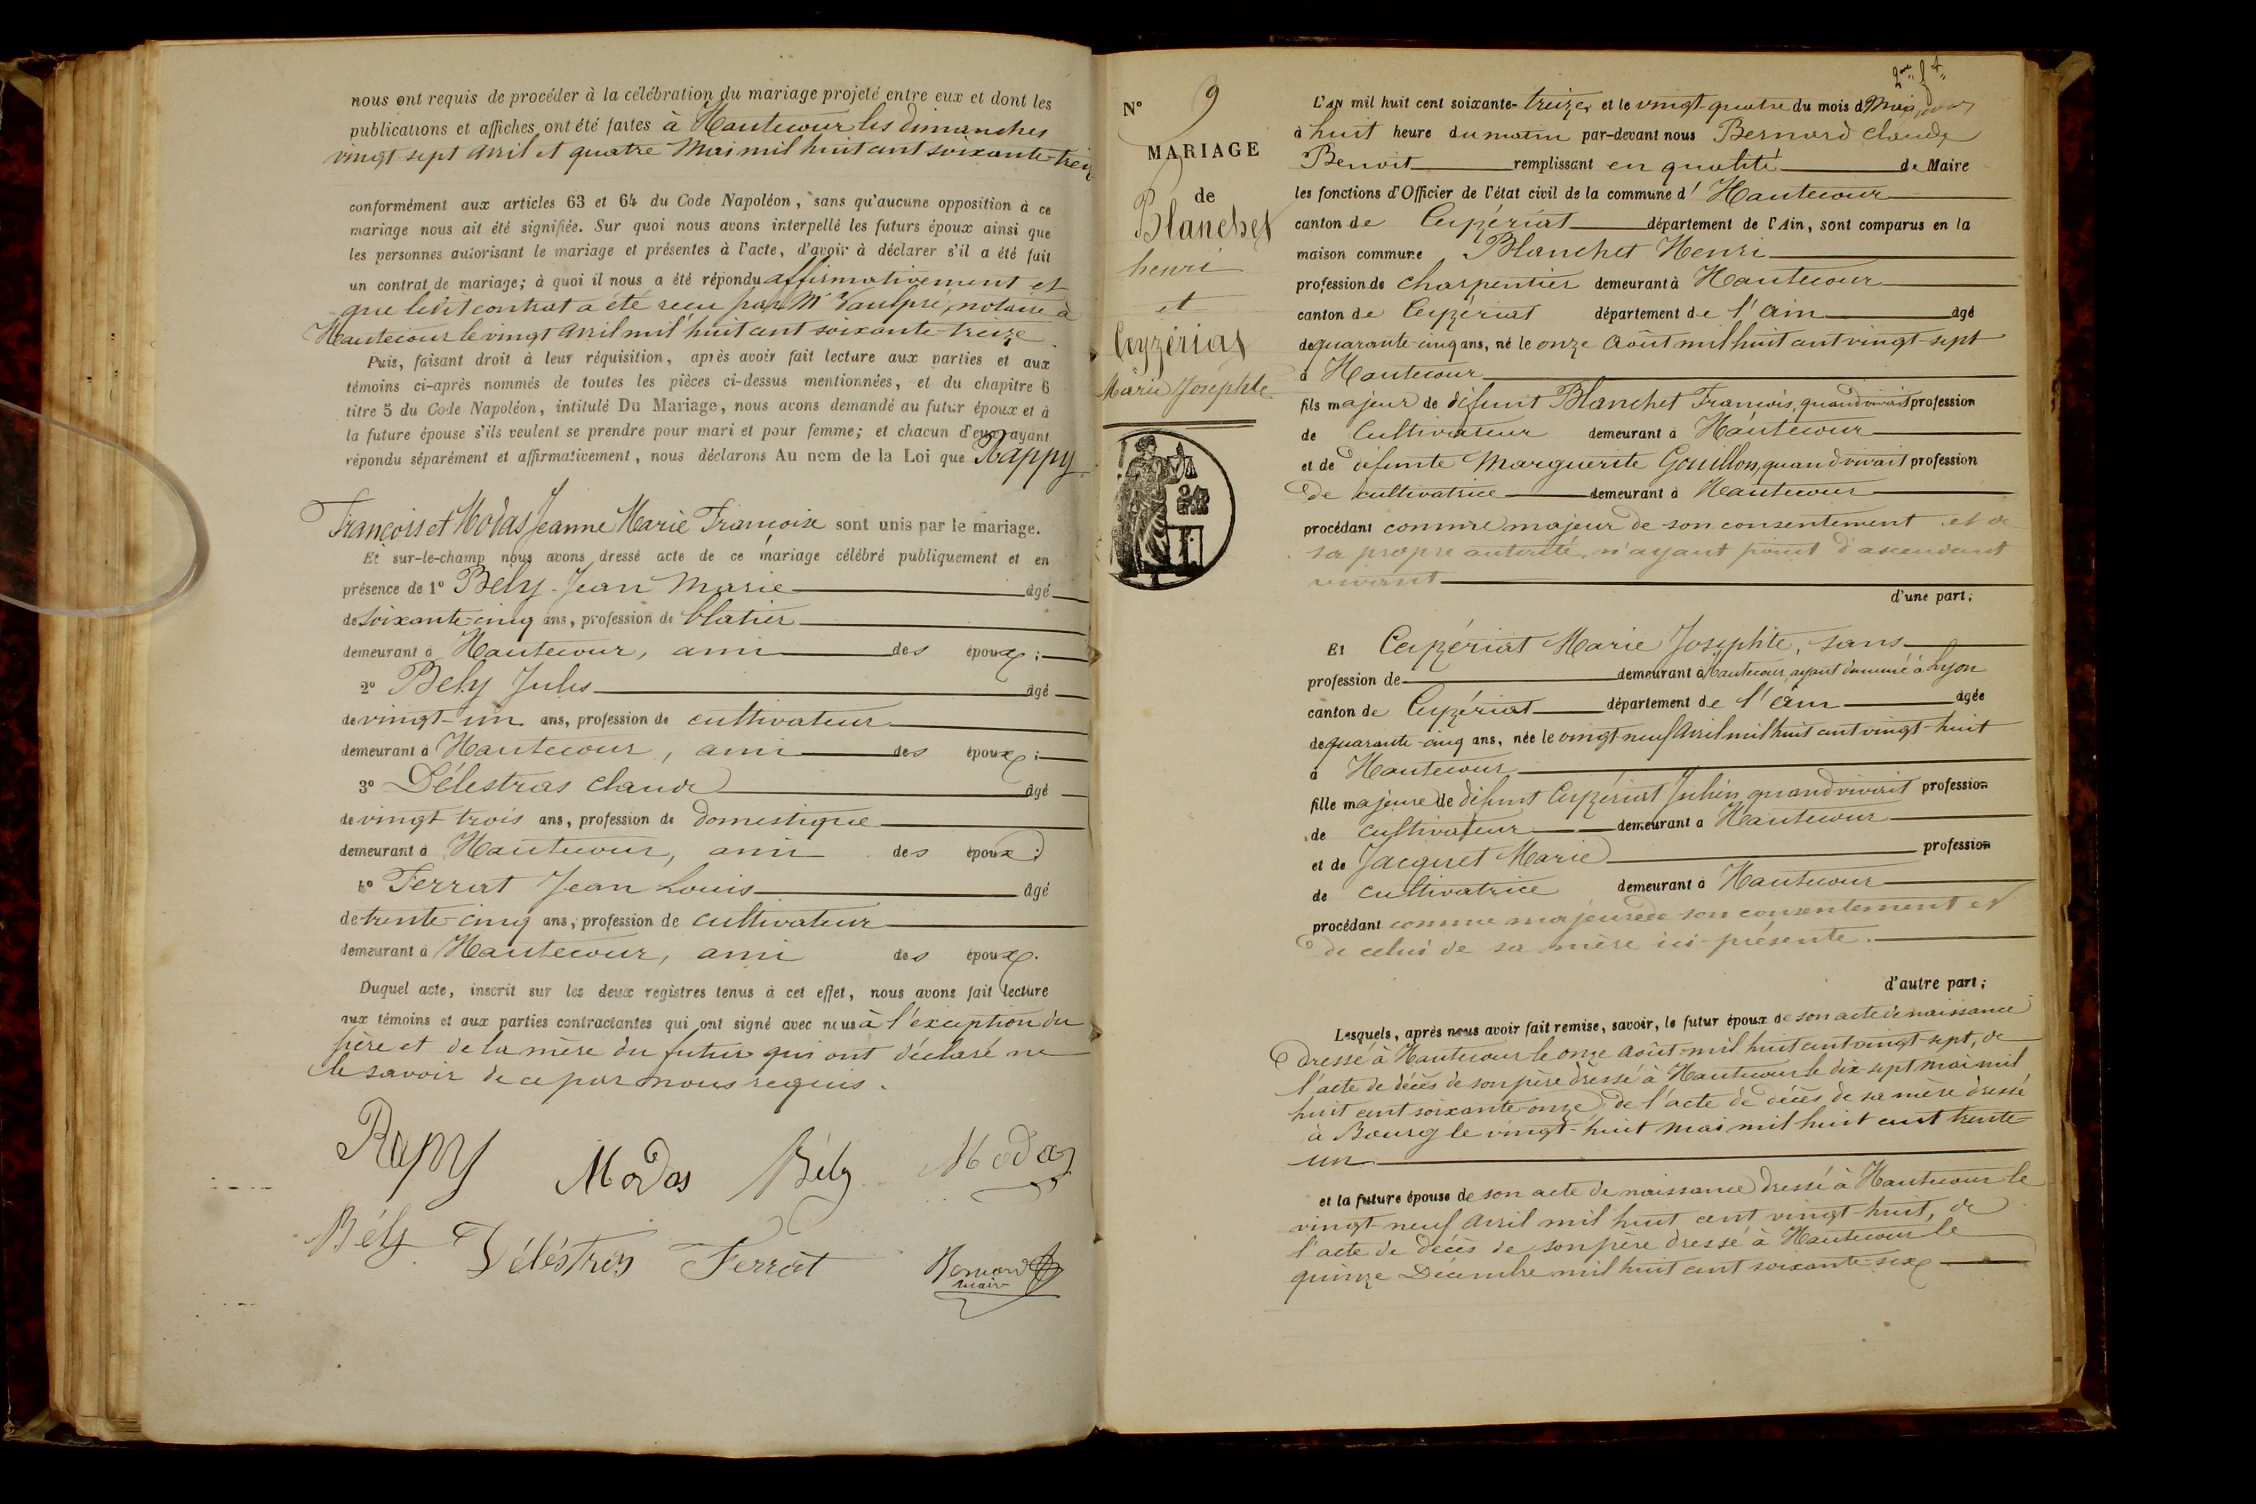 nous ont requis de procéder à la célébration du mariage projeté entre eux et dont les
publications et affiches ont été faites à Hautecour les dimanches
vingt sept avril et quatre Mai mil huit cent soixante-treize
conformément aux articles 63 et 64 du Code Napoléon, sans qu'aucune opposition à ce
mariage nous ait été signifiée. Sur quoi nous avons interpellé les futurs époux ainsi que
les personnes autorisant le mariage et présentes à l'acte, d'avoir à déclarer s'il a été fait
un contrat de mariage; à quoi il nous a été répondu affirmativement et
que ledit contrat a été reçu par Mr Vaulpré, notaire à
Hautecour le vingt avril mil huit cent soixante-treize.
Puis, faisant droit à leur réquisition, après avoir fait lecture aux parties et aux
témoins ci-après nommés de toutes les pièces ci-dessus mentionnées, et du chapitre 6
titre 5 du Code Napoléon, intitulé Du Mariage, nous avons demandé au futur époux et à
la future épouse s'ils veulent se prendre pour mari et pour femme; et chacun d'eux ayant
répondu séparément et affirmativement, nous déclarons Au nom de la Loi que Rappy
François et Modas Jeanne Marie Françoise sont unis par le mariage.
Et sur-le-champ nous avons dressé acte de ce mariage célébré publiquement et en
présence de 1º Bely Jean Marie âgé
de soixante-cinq ans, profession de blatier
demeurant à Hautecour, ami des époux;
2º Bely Jules âgé
de vingt-un ans, profession de cultivateur
demeurant à Hautecour, ami des époux;
3º Délestras Claude âgé
de vingt trois ans, profession de domestique
demeurant à Hautecour, ami des époux;
4º Ferrat Jean Louis âgé
de trente-cinq ans, profession de cultivateur
demeurant à Hautecour, ami des époux.
Duquel acte, inscrit sur les deux registres tenus à cet effet, nous avons fait lecture
aux témoins et aux parties contractantes qui ont signé avec nous à l'exception du
père et de la mère du futur qui ont déclaré ne
le savoir de ce par nous requis.
Rapy Modas Bély Modas
Bély Déléstras Ferrat Bernard
maire
Nº 9
MARIAGE
de
Blanchet
henri
et
Ceyzériat
Marie Josephte
L'an mil huit cent soixante-treize et le vingt-quatre du mois de Mai
à huit heure du matin par-devant nous Bernard Claude
Benoit remplissant en qualité de Maire
les fonctions d'Officier de l'état civil de la commune d'Hautecour
canton de Ceyzériat département de l'Ain, sont comparus en la
maison commune Blanchet Henri
profession de charpentier demeurant à Hautecour
canton de Ceyzériat département de l'ain âgé
de quarante-cinq ans, né le onze Août mil huit cent vingt-sept
à Hautecour
fils majeur de défunt Blanchet François, quand vivait profession
de Cultivateur demeurant à Hautecour
et de défunte Marguerite Gouillon, quand vivait profession
de cultivatrice demeurant à Hautecour
procédant comme majeur de son consentement et de
sa propre autorité, n'ayant point d'ascendant
vivant
d'une part;
Et Ceyzériat Marie Josephte, sans
profession de demeurant à Hautecour, ayant demeuré à Lyon
canton de Ceyzériat département de l'ain âgée
de quarante-cinq ans, née le vingt-neuf Avril mil huit cent vingt-huit
à Hautecour
fille majeure de défunt Ceyzériat Julien, quand vivait profession
de cultivateur demeurant à Hautecour
et de Jacquet Marie profession
de cultivatrice demeurant à Hautecour
procédant comme majeure de son consentement et
de celui de sa mère ici-présente.
d'autre part;
Lesquels, après nous avoir fait remise, savoir, le futur époux de son acte de naissance
dressé à Hautecour le onze Août mil huit cent vingt-sept, de
l'acte de décès de son père dressé à Hautecour le dix-sept mai mil
huit cent soixante-onze, de l'acte de décès de sa mère dressé
à Bourg le vingt-huit mai mil huit cent trente-
un
et la future épouse de son acte de naissance dressé à Hautecour le
vingt-neuf Avril mil huit cent vingt-huit, de
l'acte de décès de son père dressé à Hautecour le
quinze Décembre mil huit cent soixante-six